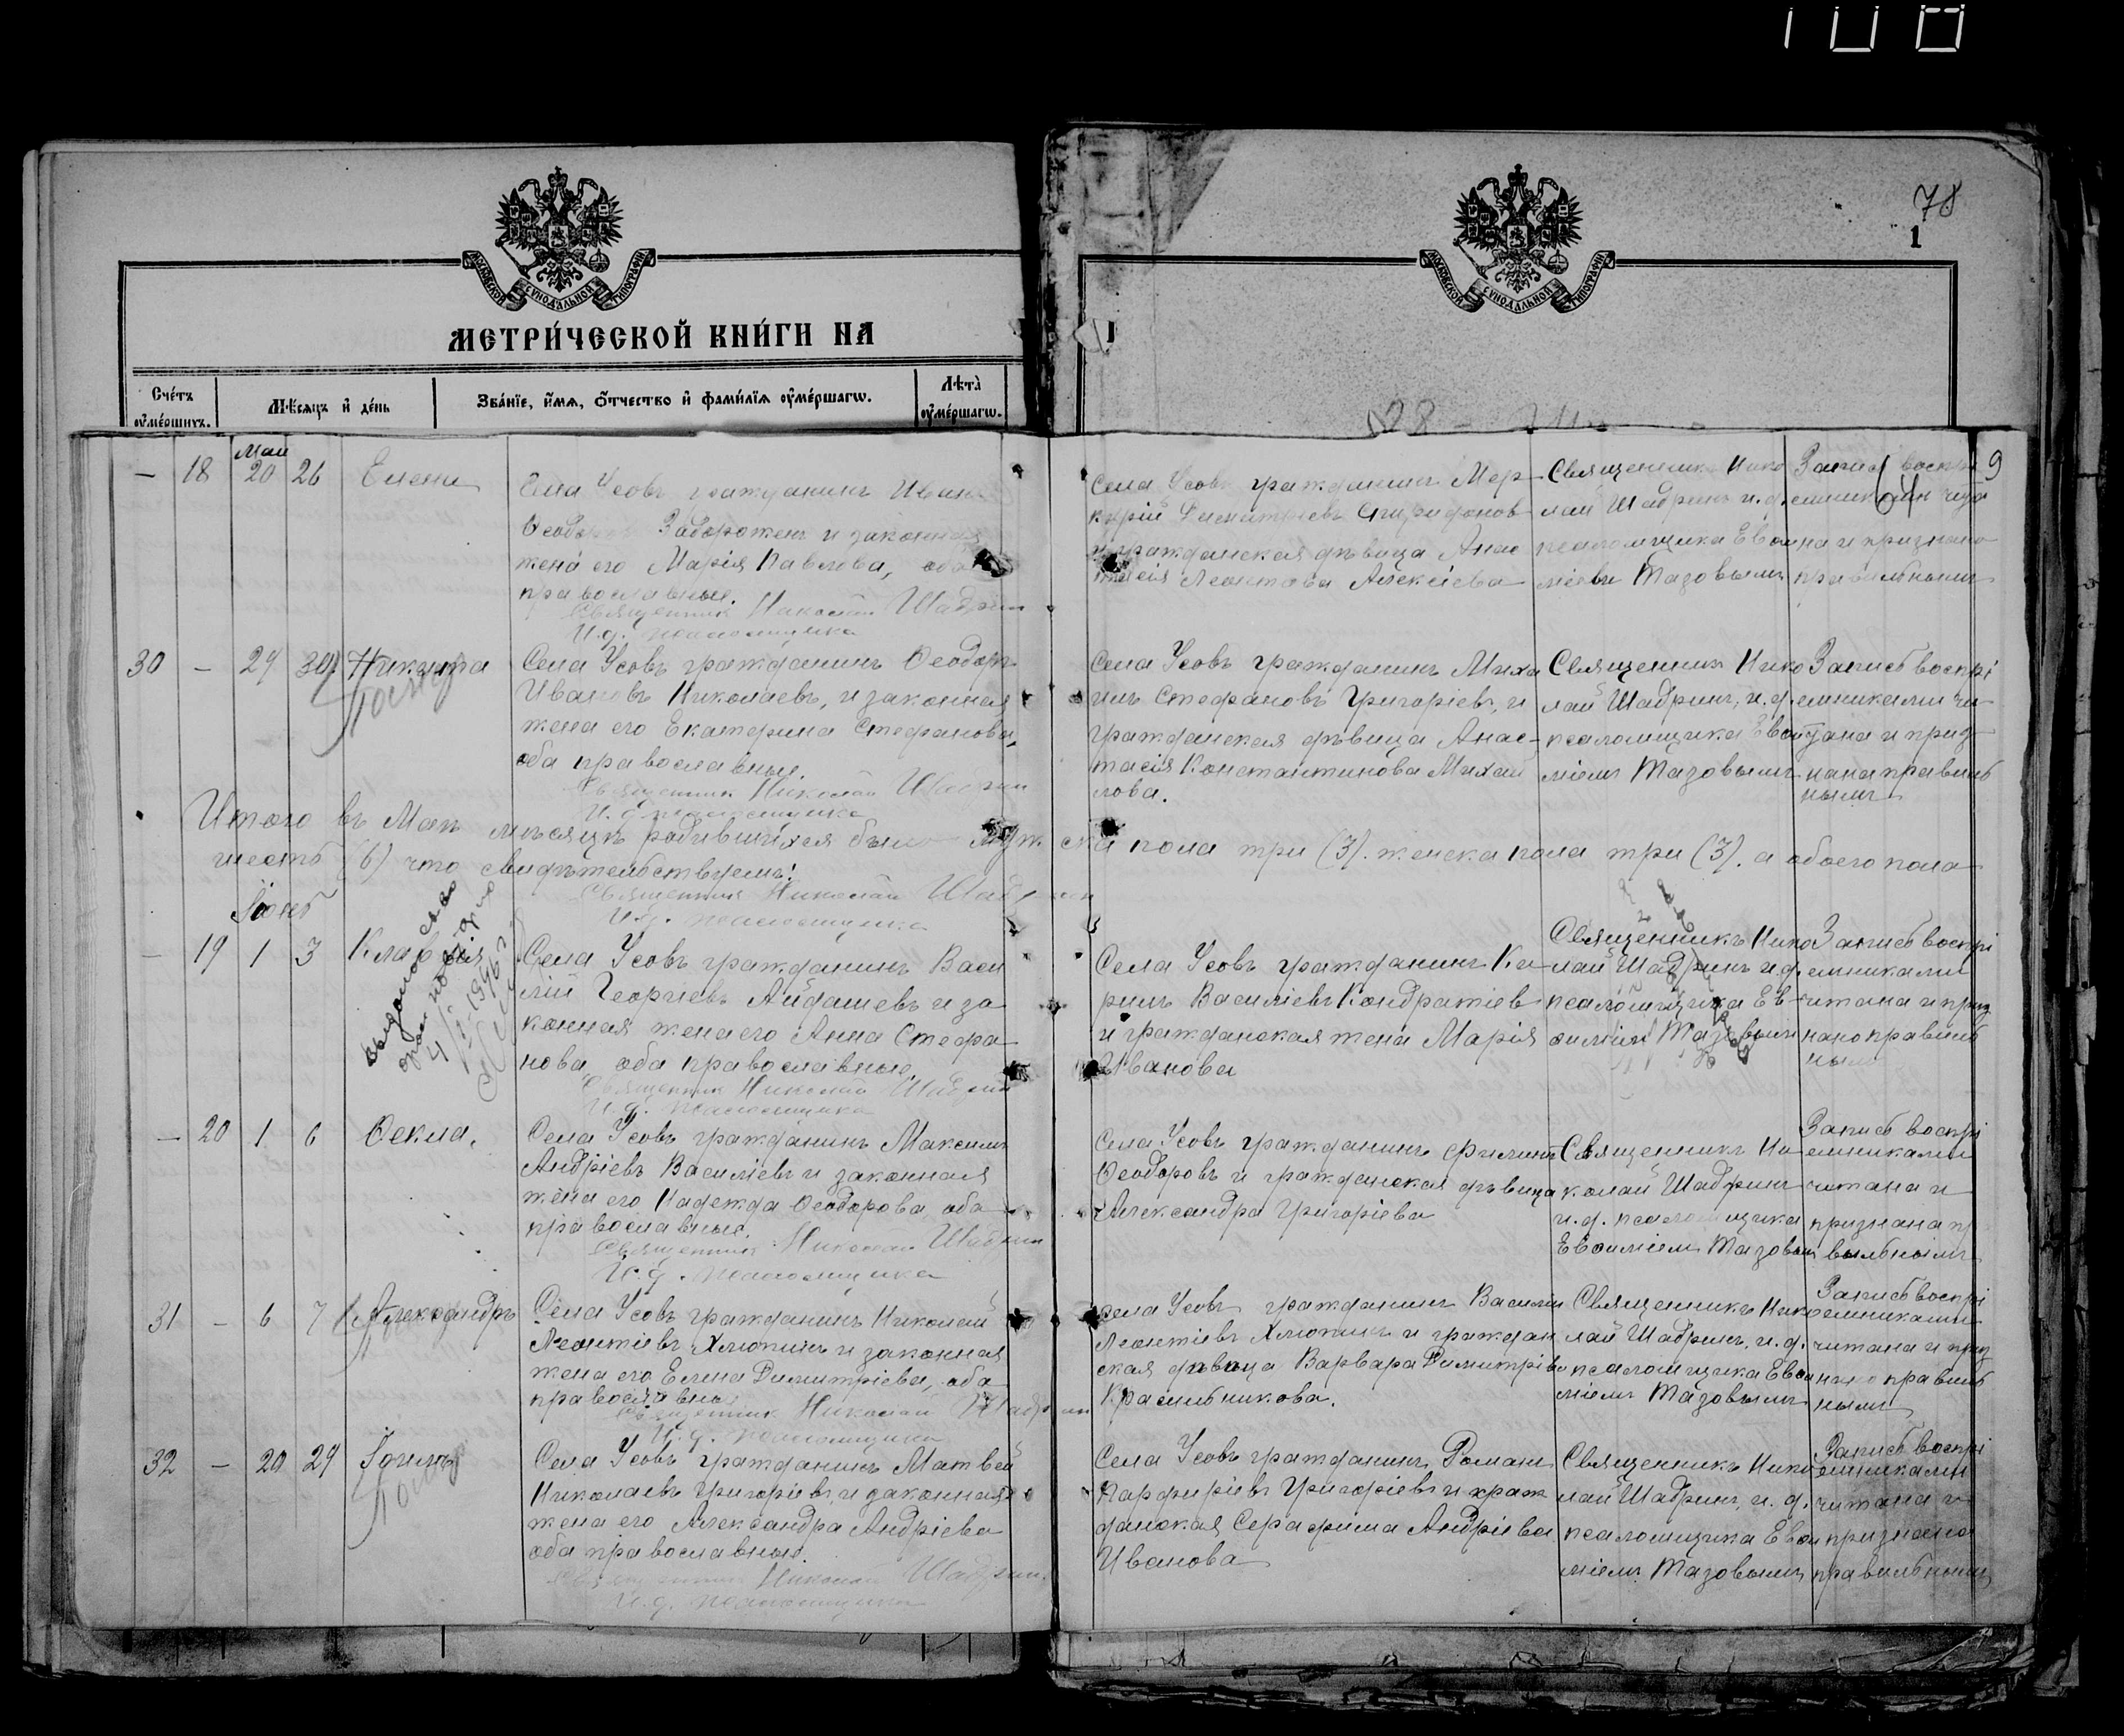 108
78
1
МОСКОВСКОЙ СѴНОДАЛЬНОЙ ТИПОГРАФІИ
МЕТРИ́ЧЕСКОЙ КНИ́ГИ НА
Сче́тъ оу҆ме́ршихъ.
Мѣ́сяцъ и҆ де́нь
Зва́нїе, и҆́мѧ, ѻ҆́тчество и҆ фами́лїѧ оу҆ме́ршагѡ.
Лѣ́та оу҆ме́ршагѡ.
МОСКОВСКОЙ СѴНОДАЛЬНОЙ ТИПОГРАФІИ
9
Май
— 18 20 26 Елена
Села Усовъ гражданинъ Иванъ
Ѳеодоровъ Забороженъ и законная
жена его Марія Павлова, оба
православные.
Священникъ Николай Шадрин
И.д. псаломщика
Села Усовъ гражданинъ Мер-
курій Димитріевъ Спиридонов
и гражданская дѣвица Анас
тасія Леонтова Алексіева
Священникъ Нико
лай Шадринъ и.д.
псаломщика Евѳи
міевъ Тазовымъ
Запись воспрі
емникам чита
на и признано
правильнымъ
30 — 24 30 Никита
Села Усовъ гражданинъ Ѳеодоръ
Ивановъ Николаевъ, и законная
жена его Екатерина Стефанова,
оба православные.
Священник Николай Шадрин
И.д. псаломщика
Села Усовъ гражданинъ Миха
илъ Стефановъ Григоріевъ, и
гражданская дѣвица Анас-
тасія Константинова Михай
лова.
Священник Нико
лай Шадринъ, и.д.
псаломщика Евѳи
міемъ Тазовымъ
Запись воспрі
емниками чи
тана и приз
нана правиль
нымъ
Итого въ Маѣ мѣсяцѣ родившихся было муж ска пола три (3). женска пола три (3). а обоего пола
шесть (6) что свидѣтельствуемъ:
Священник Николай Шадрин
И.д. псаломщика
Іюнь
— 19 1 3 Клавдія
Села Усовъ гражданинъ Васи
лій Георгіевъ Айдашевъ и за
конная жена его Анна Стефа
нова, оба православные.
Священник Николай Шадрин
И.д. псаломщика
Села Усовъ гражданинъ Ки
рилъ Василіевъ Кондратіев
и гражданская жена Марія
Иванова
Священникъ Нико
лай Шадринъ и.д.
псаломщика Ев-
ѳиміем Тазовым
Запись воспрі
емниками
читана и приз
нано правиль
ным
— 20 1 6 Ѳекла.
Села Усовъ гражданинъ Максимъ
Андріевъ Василіевъ и законная
жена его Надежда Ѳеодорова, оба
православные.
Священник Николай Шадрин
И.д. псаломщика
Села Усовъ гражданинъ Филипп
Ѳеодоровъ и гражданская дѣвица
Александра Григоріева
Священникъ Ни
колай Шадринъ
и.д. псаломщика
Евѳиміем Тазовым
Запись воспрі
емниками
читана и
признана пр
вильнымъ
31 — 6 7 Александръ
Села Усовъ гражданинъ Николай
Леонтіевъ Хлюпинъ и законная
жена его Елена Димитріева, оба
православны
Священник Николай Шадрин
И.д. псаломщика
Села Усовъ гражданинъ Василій
Леонтіевъ Хлюпинъ и граждан
ская дѣвица Варвара Димитріева
Красильникова.
Священникъ Нико
лай Шадринъ, и.д.
псаломщика Евѳи
міемъ Тазовымъ
Запись воспрі
емниками
читана и приз
нано правиль
нымъ
32 — 20 29 Іоаннъ
Села Усовъ гражданинъ Матвей
Николаевъ Григоріевъ и законная
жена его Александра Андріева
оба православные.
Священник Николай Шадрин.
И.д. псаломщика
Села Усовъ гражданинъ Романъ
Парфиріевъ Григоріевъ и граж
данская Серафима Андріева
Иванова
Священникъ Нико
лай Шадринъ, и.д.
псаломщика Евѳи
міемъ Тазовымъ
Запись воспрі
емниками
читана и
признано
правильнымъ